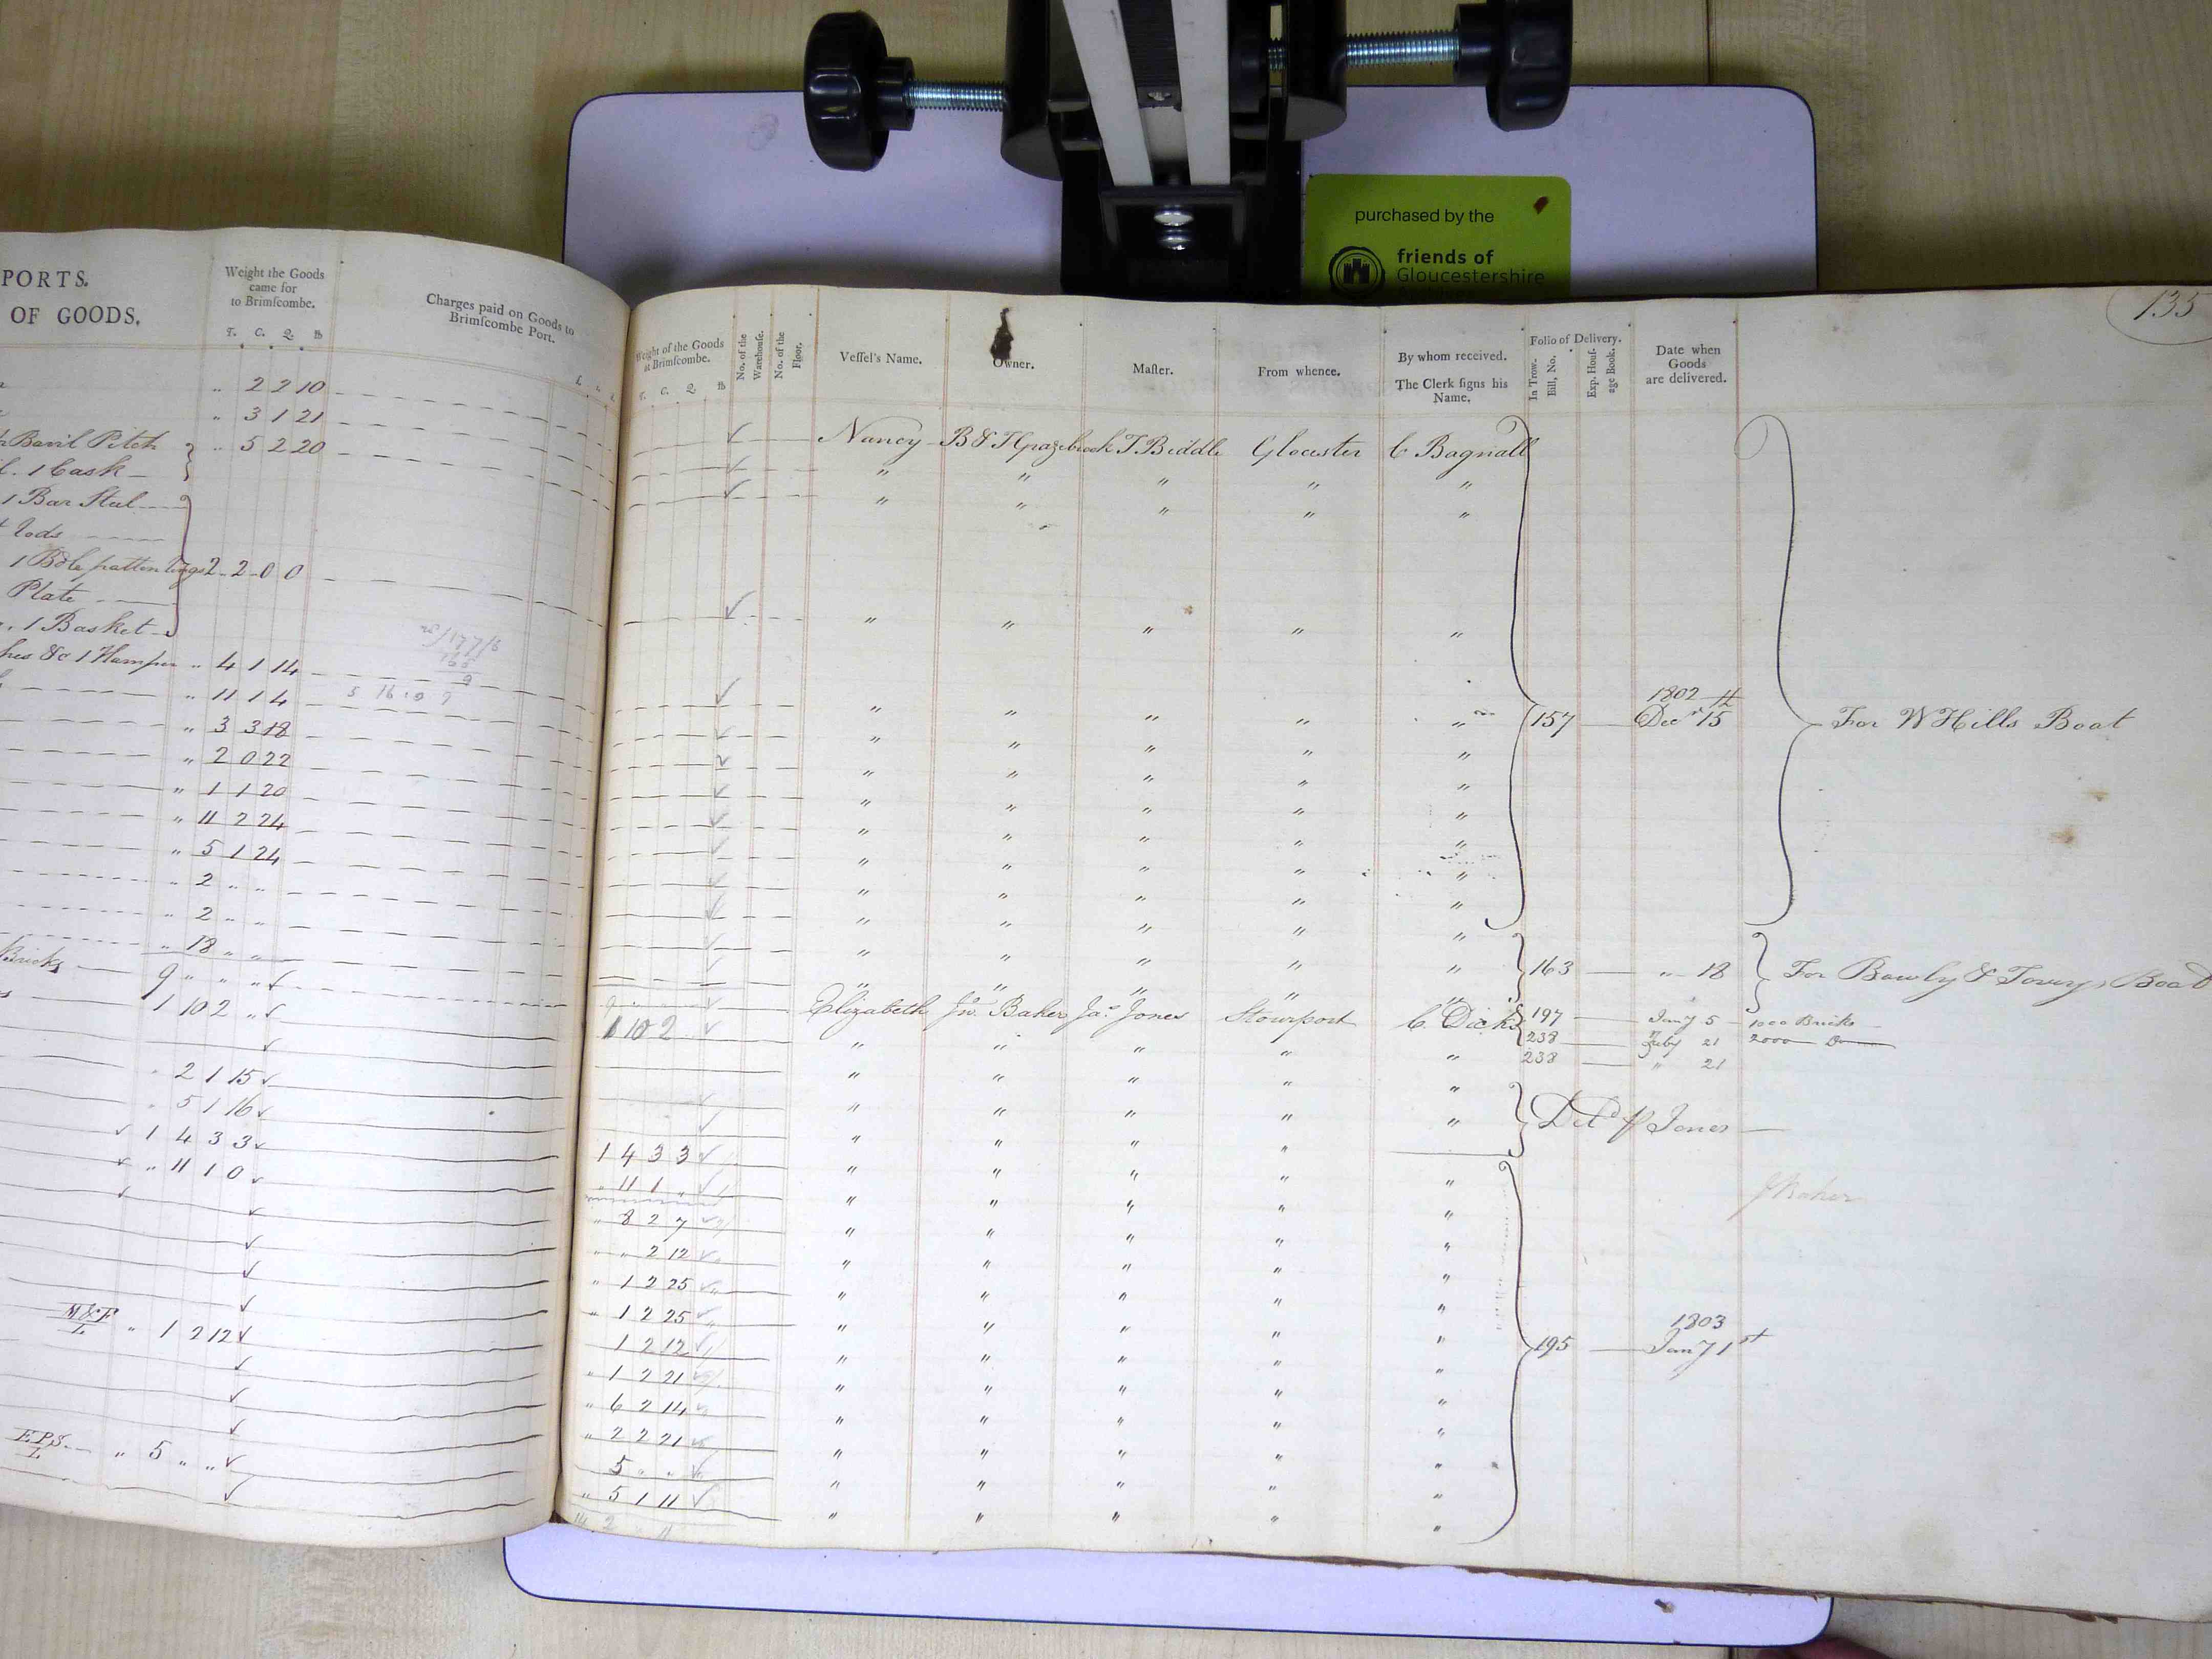 purchased by the
friends of
Gloucestershire
PORTS.
OF GOODS.
Weight the Goods
came for
to Brimſcombe.
T. C. Q. lb
Charges paid on Goods to
Brimſcombe Port.
" 2 2 10
" 3 1 21
Baril Pitch " 5 2 20
1 Cask
1 Bar Steel
1 Bdle patten 2 2 0 0
Plate
1 Basket
&c 1 Hamper " 4 1 14
" 11 1 4
" 3 3 18
" 2 0 22
" 1 1 20
" 11 2 24
" 5 1 24
" 2 " "
" 2 " "
" 18 " "
Bricks 9 " " "
1 10 2 "
" 2 1 15
" 5 1 16
1 4 3 3
" 11 1 0
M&F
L " 1 2 12
EPS
L " 5 " "
135
Weight of the Goods
at Brimſcombe.
T. C. Q. lb
No. of the
Warehouſe.
No. of the
Floor.
Veſſel's Name.
Owner.
Maſter.
From whence.
By whom received.
The Clerk ſigns his
Name.
Folio of Delivery.
In Trow-
Bill, No.
Exp. Houſ-
age Book.
Date when
Goods
are delivered.
Nancy B & T Grazebrook T Biddle Glocester C Bagnall
" " " " "
" " " " "
" " " " "
1802
" " " " " 157 Decr 15th For W Hills Boat
" " " " "
" " " " "
" " " " "
" " " " "
" " " " "
" " " " "
" " " " "
" " " " "
" " " " " 163 " 18 For Bowly & Toveys Boat
Elizabeth Jno. Baker Jas. Jones Stourport C. Dicks 197 Jany 5 1000 Bricks
238 July 21 2000 Do
1 10 2 " " " " " 238 " 21
" " " " "
" " " " " Deld pr Jones
1 4 3 3 " " " "
" 11 1 " " " " " "
J Baker
" 8 2 7 " " " " "
" " 2 12 " " " " "
" 1 2 25 " " " " "
" 1 2 25 " " " " "
1 2 12 " " " " " 195 1803 Jany 1st
" 1 2 21 " " " " "
" 6 2 14 " " " " "
" 2 2 21 " " " " "
5 " " " " " " "
" 5 1 11 " " " " "